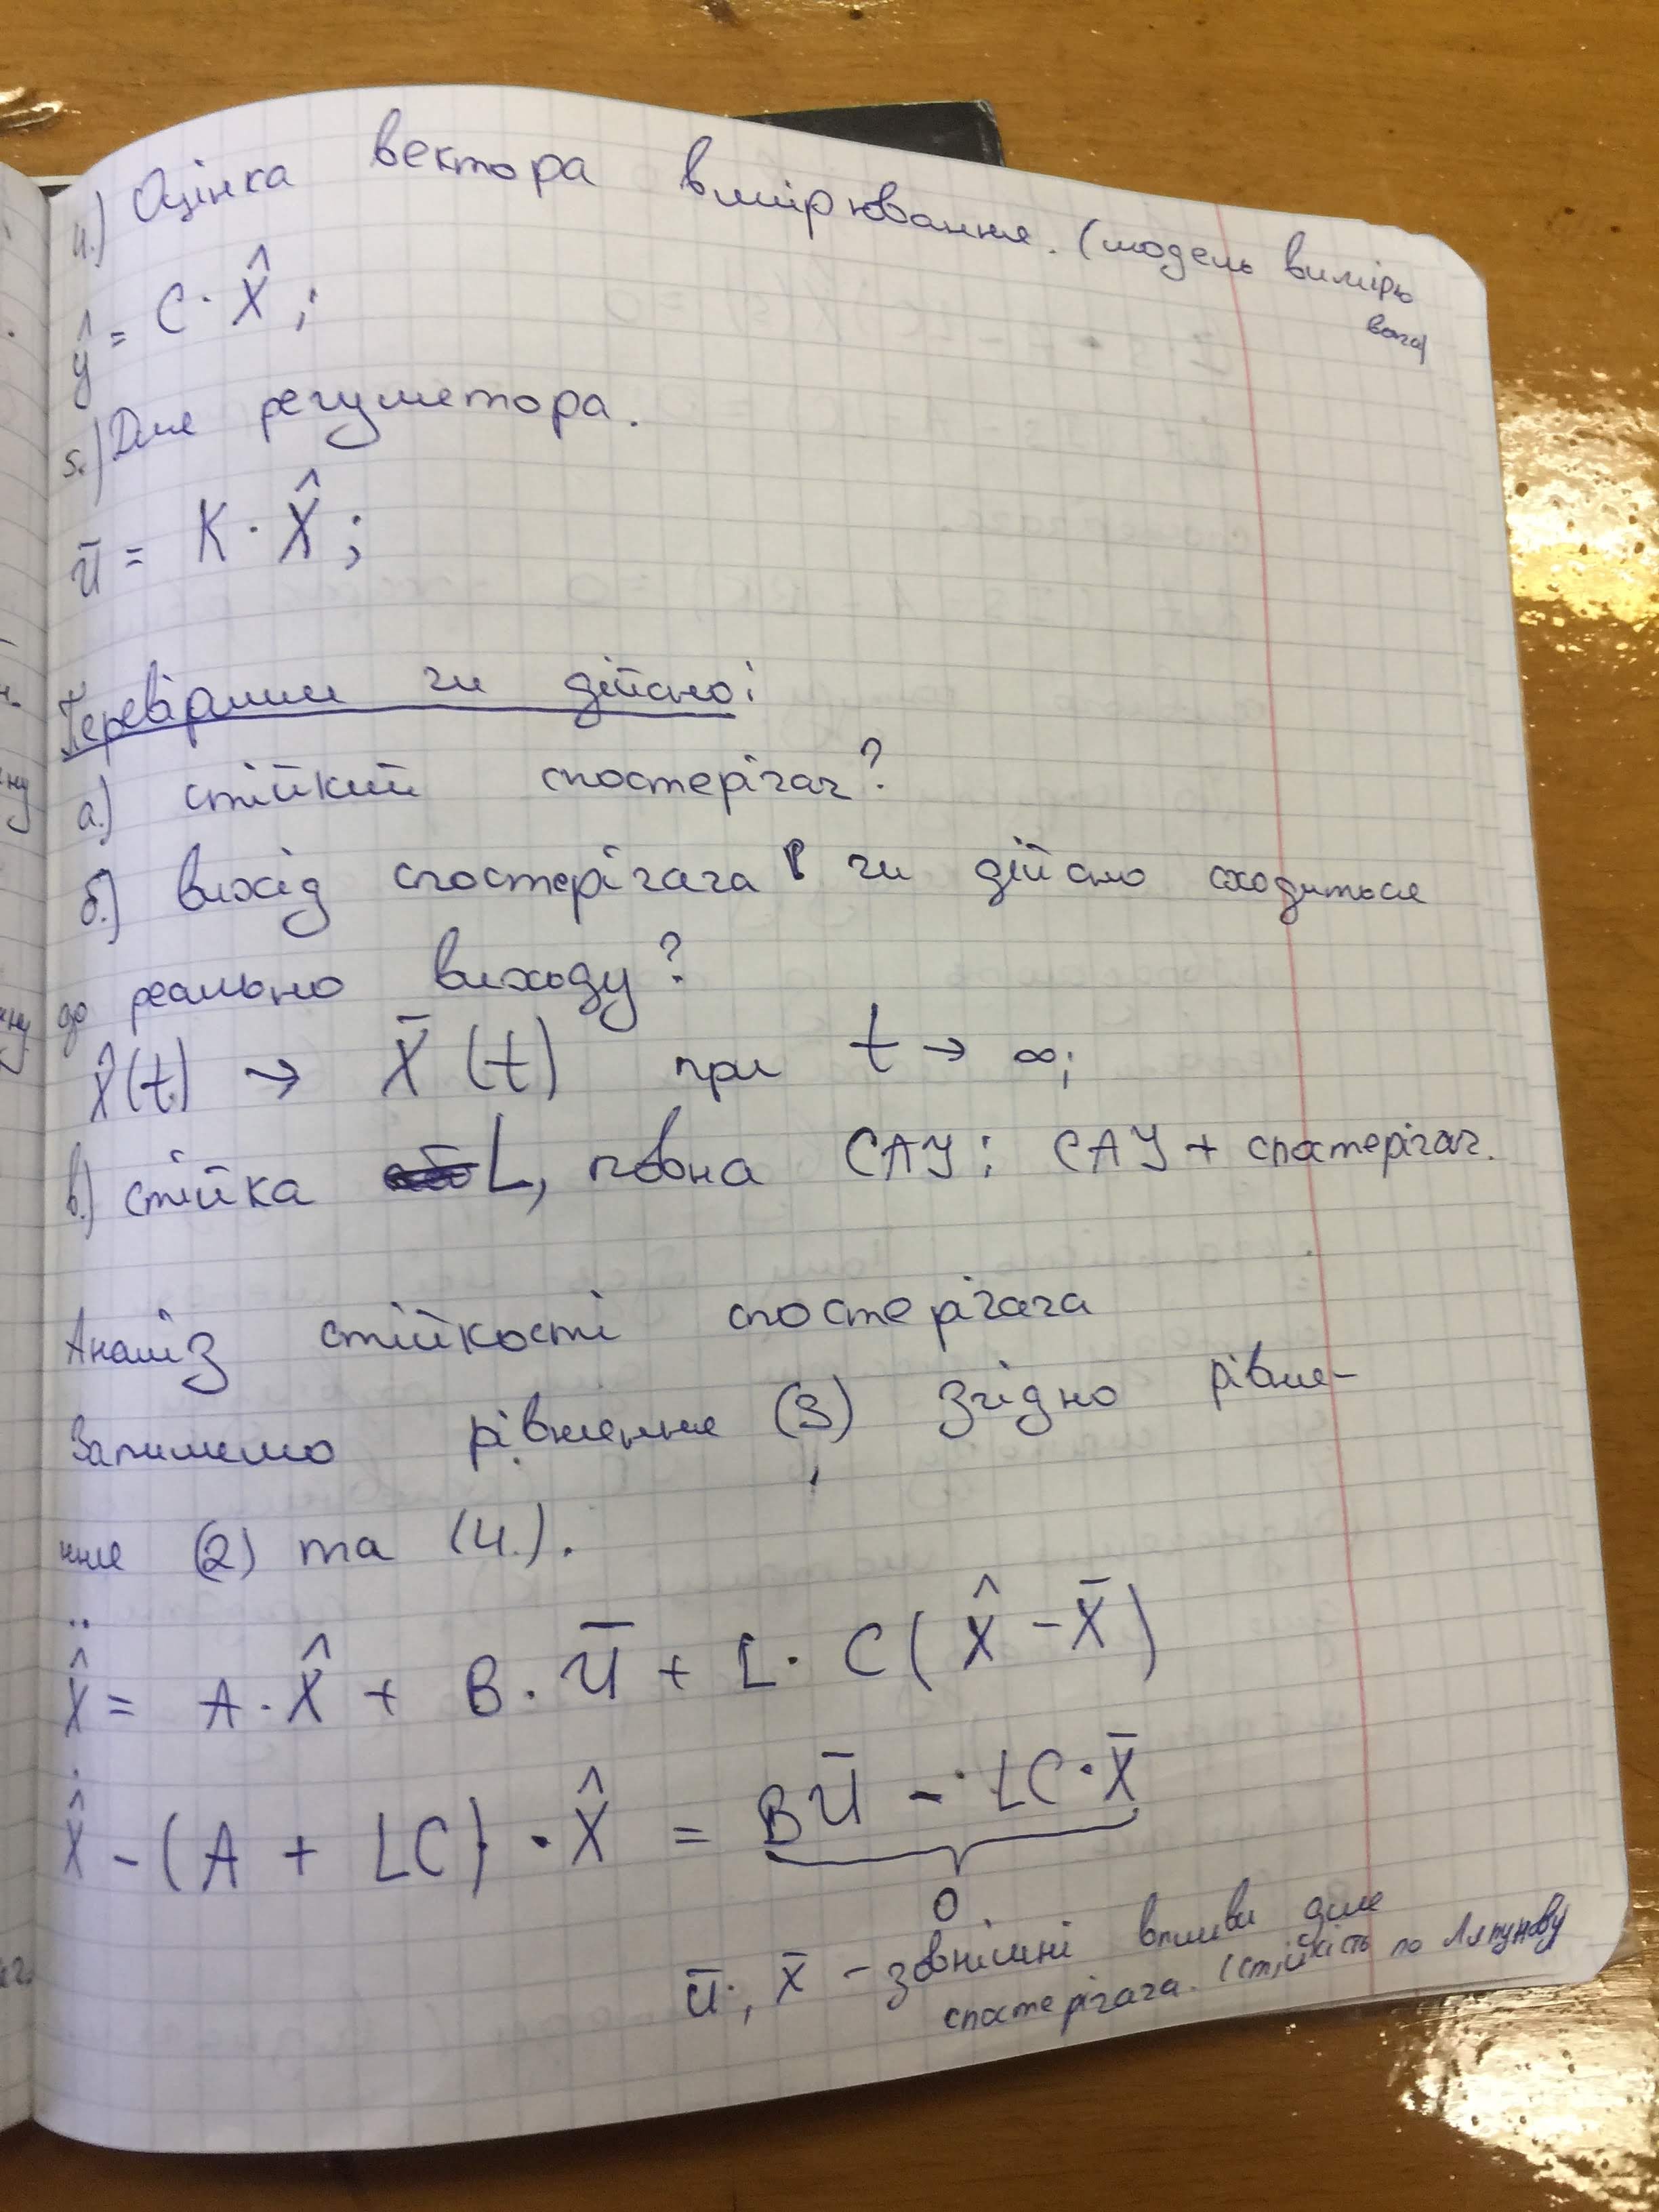 4.) Оцінка вектора вимірювання. (модель вимірю
вача)
ŷ = C · X̂ ;
5.) Для регулятора.
ū = K · X̂ ;
Перевірими чи дійсно:
а.) стійкий спостерігач?
б.) вихід спостерігача чи дійсно сходиться
до реально виходу?
X̂(t) → X̄(t) при t → ∞;
в.) стійка L, повна САУ: САУ + спостерігач.
Аналіз стійкості спостерігача
Запишемо рівняння (3) згідно рівня-
ння (2) та (4.).
X̂̈ = A · X̂ + B · Ū + L · C ( X̂ - X̄ )
X̂̇ - (A + LC) · X̂ = BŪ - LC · X̄
0
ū, x̄ - зовнішні впливи для
спостерігача. (стійкість по Ляпунову